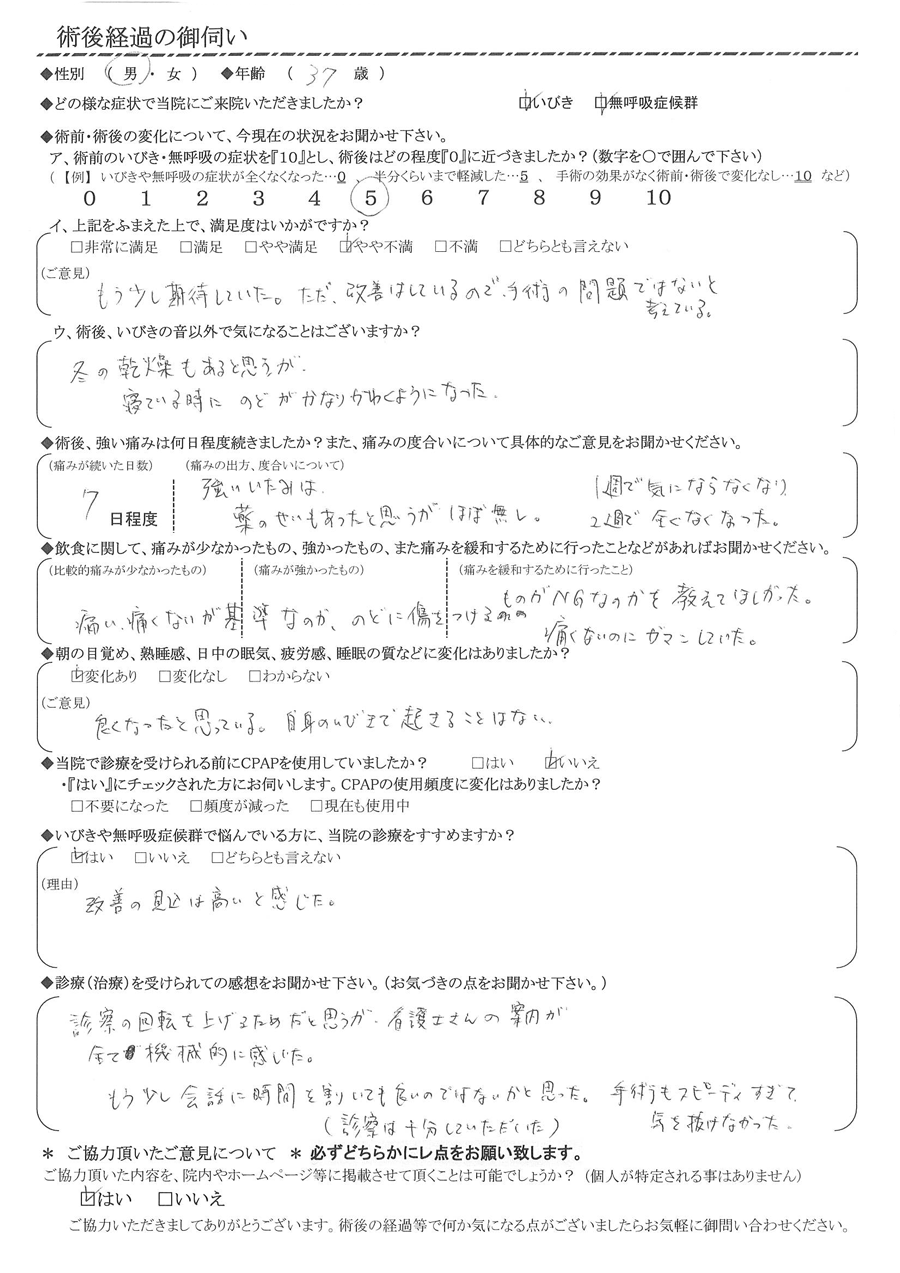 術後経過の御伺い
◆性別 ( 男 ・ 女 ) ◆年齢 ( 37 歳 )
◆どの様な症状で当院にご来院いただきましたか? ☑いびき ☑無呼吸症候群
◆術前・術後の変化について、今現在の状況をお聞かせ下さい。
ア、術前のいびき・無呼吸の症状を『10』とし、術後はどの程度『0』に近づきましたか?(数字を○で囲んで下さい)
(【例】いびきや無呼吸の症状が全くなくなった…0 、 半分くらいまで軽減した…5 、 手術の効果がなく術前・術後で変化なし…10 など)
0 1 2 3 4 5 6 7 8 9 10
イ、上記をふまえた上で、満足度はいかがですか?
□非常に満足 □満足 □やや満足 ☑やや不満 □不満 □どちらとも言えない
(ご意見)
もう少し期待していた。ただ、改善はしているので、手術の問題ではないと
考えている。
ウ、術後、いびきの音以外で気になることはございますか?
冬の乾燥もあると思うが、
寝ている時に のどがかなりかわくようになった。
◆術後、強い痛みは何日程度続きましたか?また、痛みの度合いについて具体的なご意見をお聞かせください。
(痛みが続いた日数) (痛みの出方、度合いについて)
7 日程度
強いいたみは、
薬のせいもあったと思うが ほぼ無し。
1週で気にならなくなり、
2週で 全くなくなった。
◆飲食に関して、痛みが少なかったもの、強かったもの、また痛みを緩和するために行ったことなどがあればお聞かせください。
(比較的痛みが少なかったもの) (痛みが強かったもの) (痛みを緩和するために行ったこと)
痛い、痛くないが基準なのか、のどに傷をつける
ものがNGなのかを教えてほしかった。
痛くないのにガマンしていた。
◆朝の目覚め、熟睡感、日中の眠気、疲労感、睡眠の質などに変化はありましたか?
☑変化あり □変化なし □わからない
(ご意見)
良くなったと思っている。自身のいびきで起きることはない。
◆当院で診療を受けられる前にCPAPを使用していましたか? □はい ☑いいえ
・『はい』にチェックされた方にお伺いします。CPAPの使用頻度に変化はありましたか?
□不要になった □頻度が減った □現在も使用中
◆いびきや無呼吸症候群で悩んでいる方に、当院の診療をすすめますか?
☑はい □いいえ □どちらとも言えない
(理由)
改善の見込は高いと感じた。
◆診療(治療)を受けられての感想をお聞かせ下さい。(お気づきの点をお聞かせ下さい。)
診察の回転を上げるためだと思うが、看護士さんの案内が
全て機械的に感じた。
もう少し会話に時間を割いても良いのではないかと思った。 手術うもスピーディすぎて、
(診察は十分していただいた) 気を抜けなかった。
* ご協力頂いたご意見について *必ずどちらかにレ点をお願い致します。
ご協力頂いた内容を、院内やホームページ等に掲載させて頂くことは可能でしょうか?(個人が特定される事はありません)
☑はい □いいえ
ご協力いただきましてありがとうございます。術後の経過等で何か気になる点がございましたらお気軽に御問い合わせください。